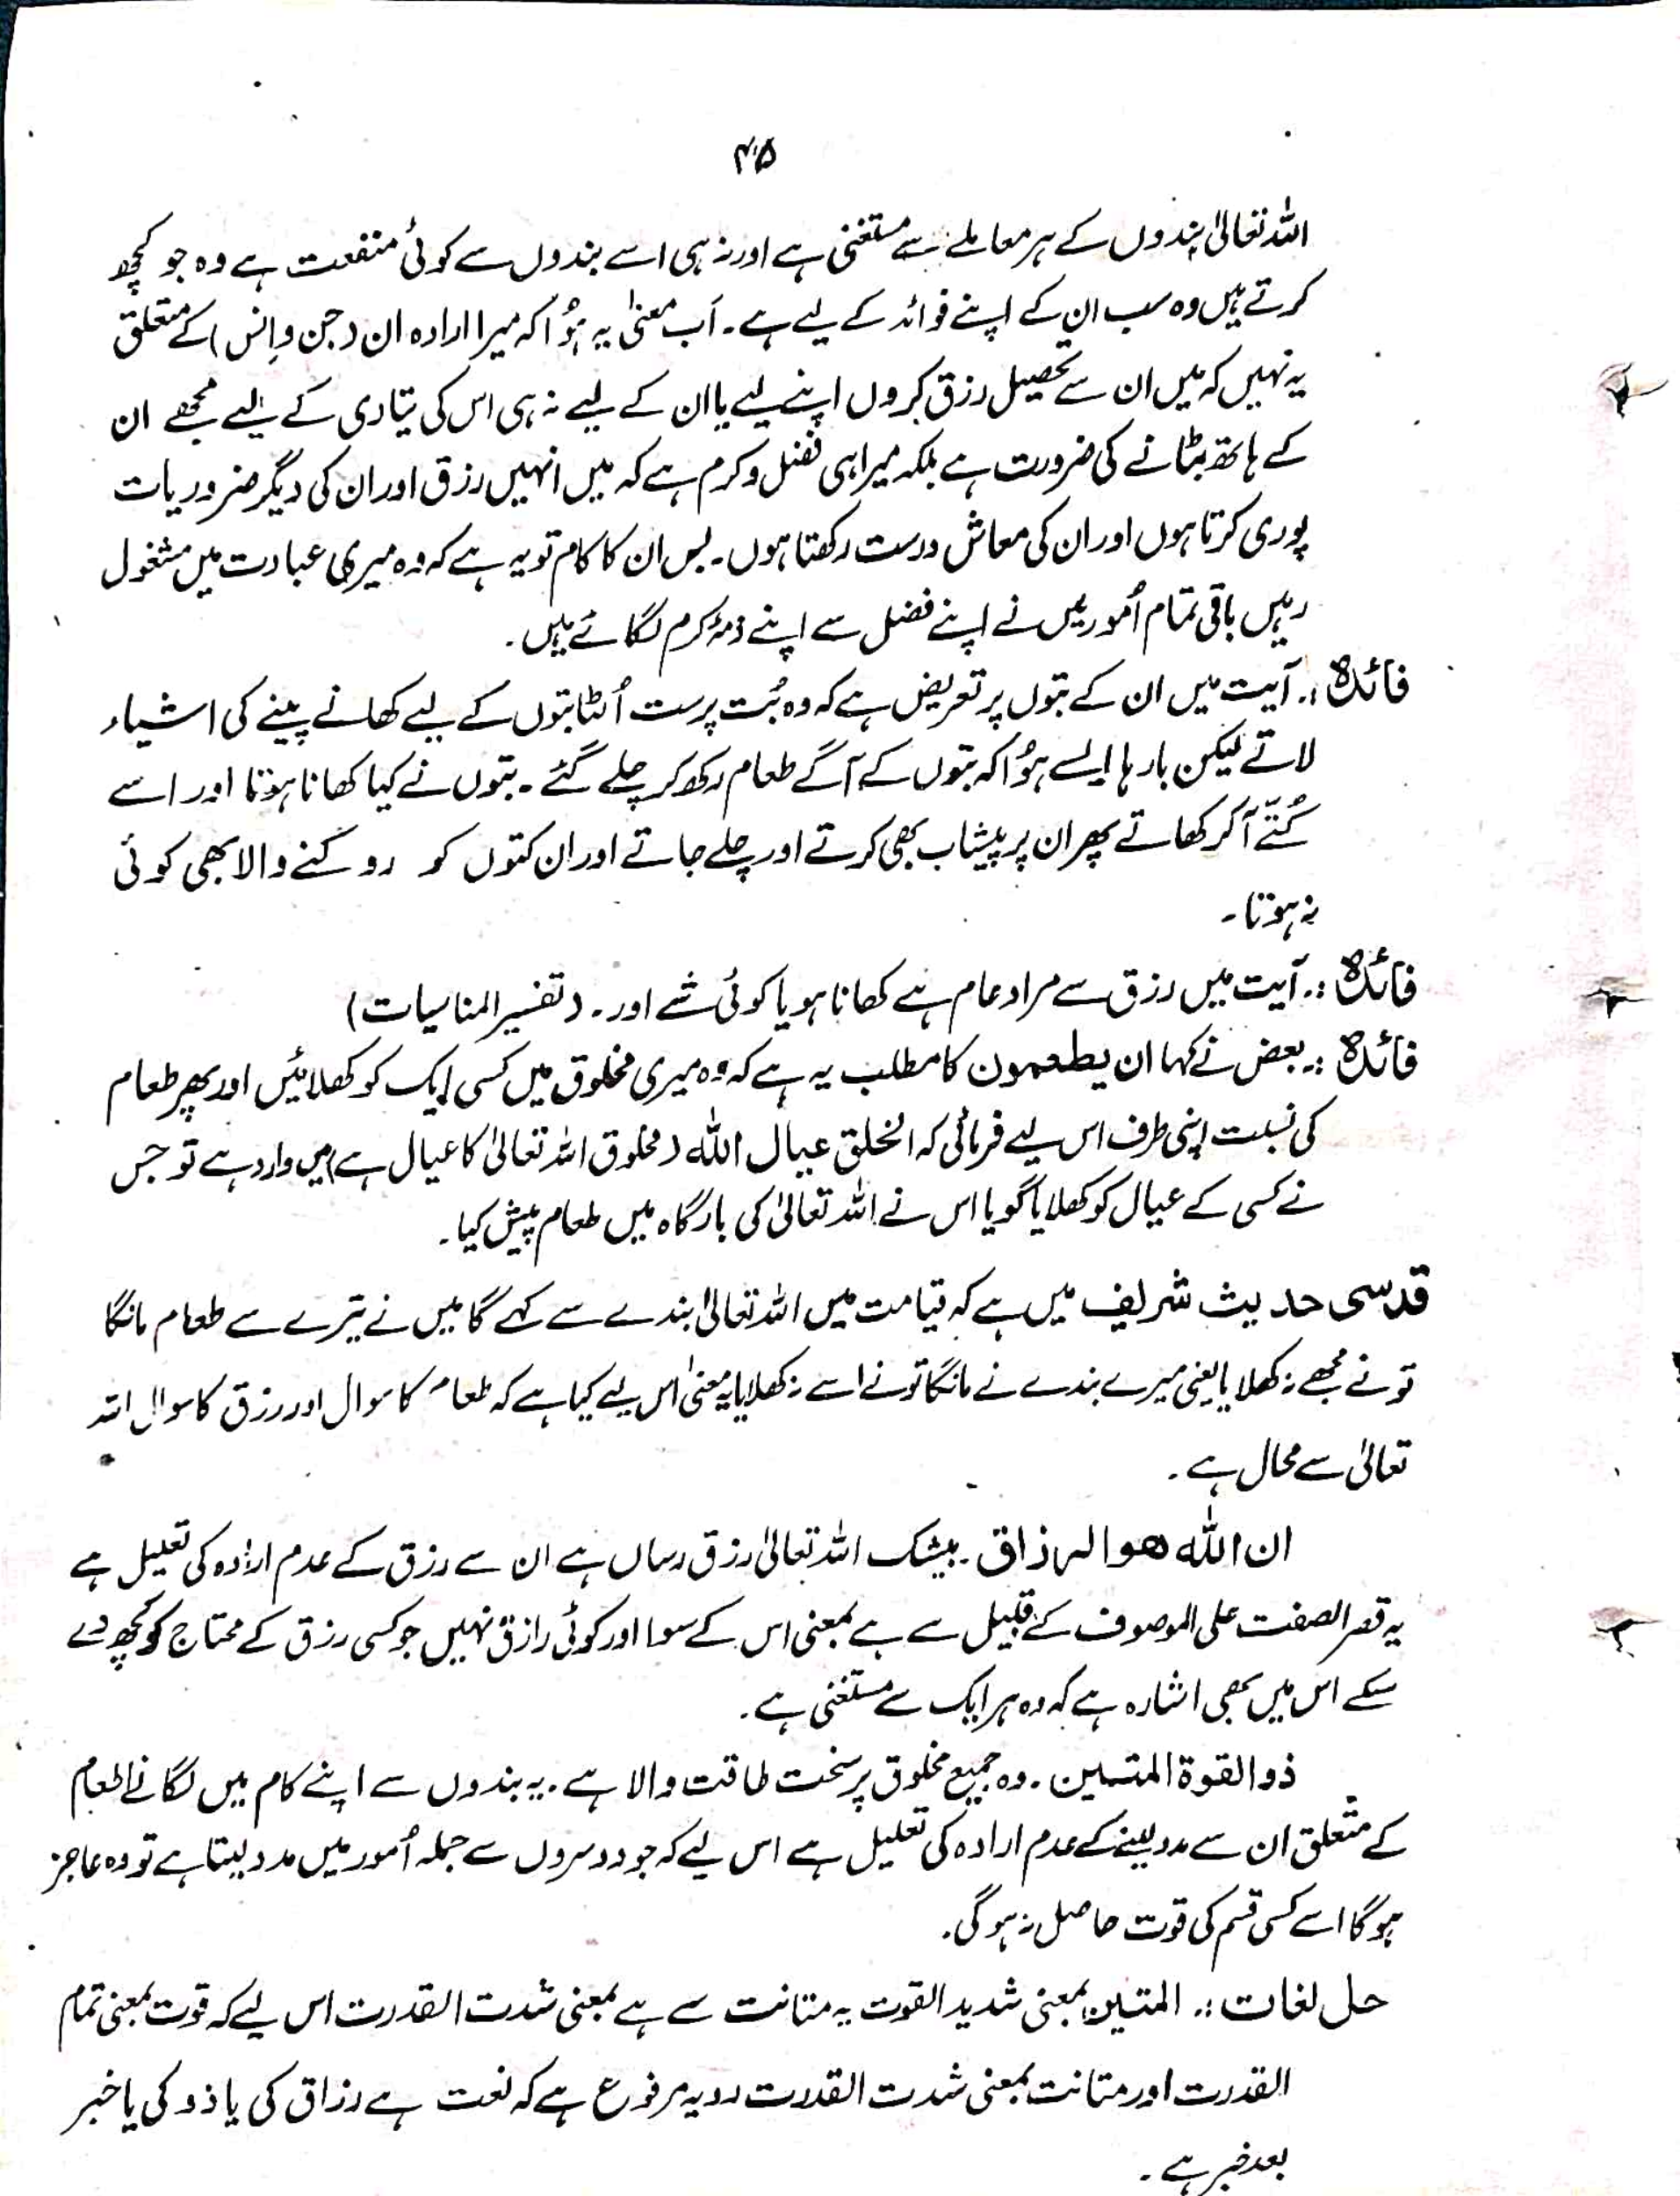 ۴۵
اللہ تعالیٰ بندوں کے ہر معاملے سے مستغنی ہے اور نہ ہی اسے بندوں سے کوئی منفعت ہے وہ جو کچھ
کرتے ہیں وہ سب ان کے اپنے فوائد کے لیے ہے۔ اَب معنیٰ یہ ہُوا کہ میرا ارادہ ان (جن و اِنس) کے متعلق
یہ نہیں کہ میں ان سے تحصیل رزق کروں اپنے لیے یا ان کے لیے نہ ہی اس کی تیاری کے لیے مجھے ان
کے ہاتھ بٹانے کی ضرورت ہے بلکہ میرا ہی فضل و کرم ہے کہ میں انہیں رزق اور ان کی دیگر ضروریات
پوری کرتا ہوں اور ان کی معاش درست رکھتا ہوں۔ بس ان کا کام تو یہ ہے کہ وہ میری عبادت میں مشغول
رہیں باقی تمام اُمور میں نے اپنے فضل سے اپنے ذمۂ کرم لگائے ہیں۔
فائدہ :۔ آیت میں ان کے بتوں پر تعریض ہے کہ وہ بُت پرست اُلٹا بتوں کے لیے کھانے پینے کی اشیاء
لاتے لیکن بارہا ایسے ہُوا کہ بتوں کے آگے طعام رکھ کر چلے گئے۔ بتوں نے کیا کھانا ہوتا اور اسے
کُتّے آکر کھاتے پھر ان پر پیشاب بھی کرتے اور چلے جاتے اور ان کتوں کو روکنے والا بھی کوئی
نہ ہوتا۔
فائدہ :۔ آیت میں رزق سے مراد عام ہے کھانا ہو یا کوئی شے اور۔ (تفسیر المناسبات)
فائدہ :۔ بعض نے کہا ان یطعمون کا مطلب یہ ہے کہ وہ میری مخلوق میں کسی ایک کو کھلائیں اور پھر طعام
کی نسبت اپنی طرف اس لیے فرمائی کہ الخلق عیال اللہ (مخلوق اللہ تعالیٰ کا عیال ہے) میں وارد ہے تو جس
نے کسی کے عیال کو کھلایا گویا اس نے اللہ تعالیٰ کی بارگاہ میں طعام پیش کیا۔
قدسی حدیث شریف میں ہے کہ قیامت میں اللہ تعالیٰ بندے سے کہے گا میں نے تیرے سے طعام مانگا
تو نے مجھے نہ کھلایا یعنی میرے بندے نے مانگا تو نے اسے نہ کھلایا یہ معنیٰ اس لیے کیا ہے کہ طعام کا سوال اور رزق کا سوال اللہ
تعالیٰ سے محال ہے۔
ان اللہ ھو الرزاق۔ بیشک اللہ تعالیٰ رزق رساں ہے ان سے رزق کے عدم ارادہ کی تعلیل ہے
یہ قصر الصفت علی الموصوف کے قبیل سے ہے بمعنی اس کے سوا اور کوئی رازق نہیں جو کسی رزق کے محتاج کو کچھ دے
سکے اس میں بھی اشارہ ہے کہ وہ ہر ایک سے مستغنی ہے۔
ذوالقوۃ المتین۔ وہ جمیع مخلوق پر سخت طاقت والا ہے۔ یہ بندوں سے اپنے کام میں لگانے اطعام
کے متعلق ان سے مدد لینے کے عدم ارادہ کی تعلیل ہے اس لیے کہ جو دوسروں سے جملہ اُمور میں مدد لیتا ہے تو وہ عاجز
ہوگا اسے کسی قسم کی قوت حاصل نہ ہوگی۔
حل لغات :۔ المتین بمعنی شدید القوت یہ متانت سے ہے بمعنی شدت القدرت اس لیے کہ قوت بمعنی تمام
القدرت اور متانت بمعنی شدت القدرت اور یہ مرفوع ہے کہ نعت ہے رزاق کی یا ذو کی یا خبر
بعد خبر ہے۔